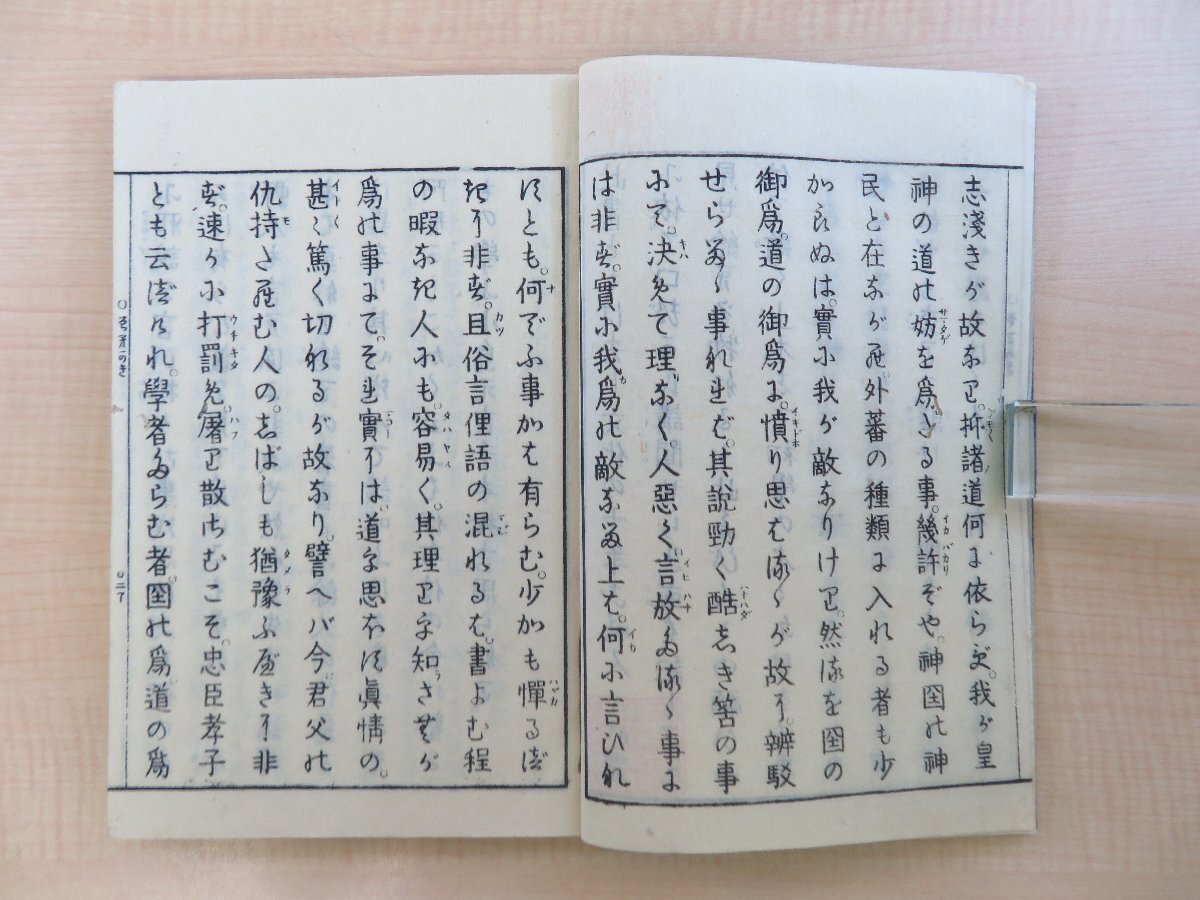 志淺きが故なり。抑諸道何に依らず。我が皇
神の道の妨を爲ざる事。幾許ぞや。神国の神
民と在ながら。外蕃の種類に入れる者も少
からぬは。實に我が敵なりけり。然るを国の
御爲。道の御爲に。憤り思はるゝが故に。辨駁
せらるゝ事なれば。其說勁く酷しき筈の事
にて。決めて理なく。人惡く。言放たるゝ事に
は非ず。實に我爲の敵なる上は。何に言ひな
すとも。何でふ事かも有らむ。少かも憚るべ
きに非ず。且俗言俚語の混れるは。書よむ程
の暇なき人にも。容易く。其理りを知さむが
爲の事にて。そは實には。道を思ほす眞情の。
甚く篤く切なるが故なり。譬へバ今。君父の
仇持たらむ人の。しばしも猶豫ふべきに非
ず。速かに打罰め。屠り散さむこそ。忠臣孝子
とも云べけれ。學者たらむ者。国の爲。道の爲